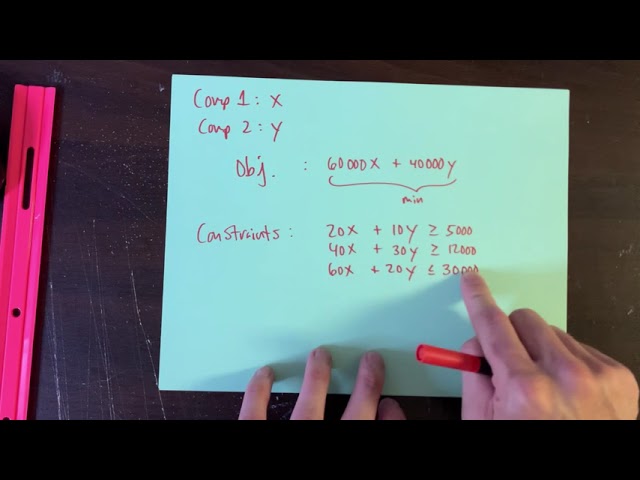 Comp 1 : X
Comp 2 : Y
Obj. : 60000X + 40000Y
min
Constraints : 20X + 10Y ≥ 5000
40X + 30Y ≥ 12000
60X + 20Y ≤ 30000